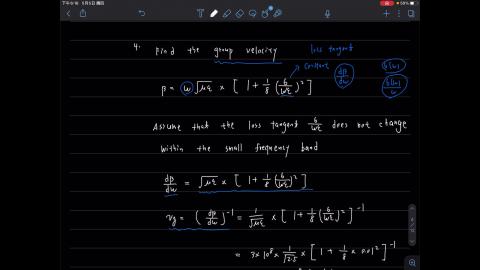 下午6:16 5月5日 週四
59%
4. Find the group velocity
loss tangent
constant
β = ω√με × [ 1 + 1/8 (σ/ωε)² ]
dβ/dω
Assume that the loss tangent σ/ωε does not change
within the small frequency band
dβ/dω = √με × [ 1 + 1/8 (σ/ωε)² ]
vg = ( dβ/dω )⁻¹ = 1/√με × [ 1 + 1/8 (σ/ωε)² ]⁻¹
= 3 × 10⁸ × 1/√2.5 × [ 1 + 1/8 × 0.01² ]⁻¹